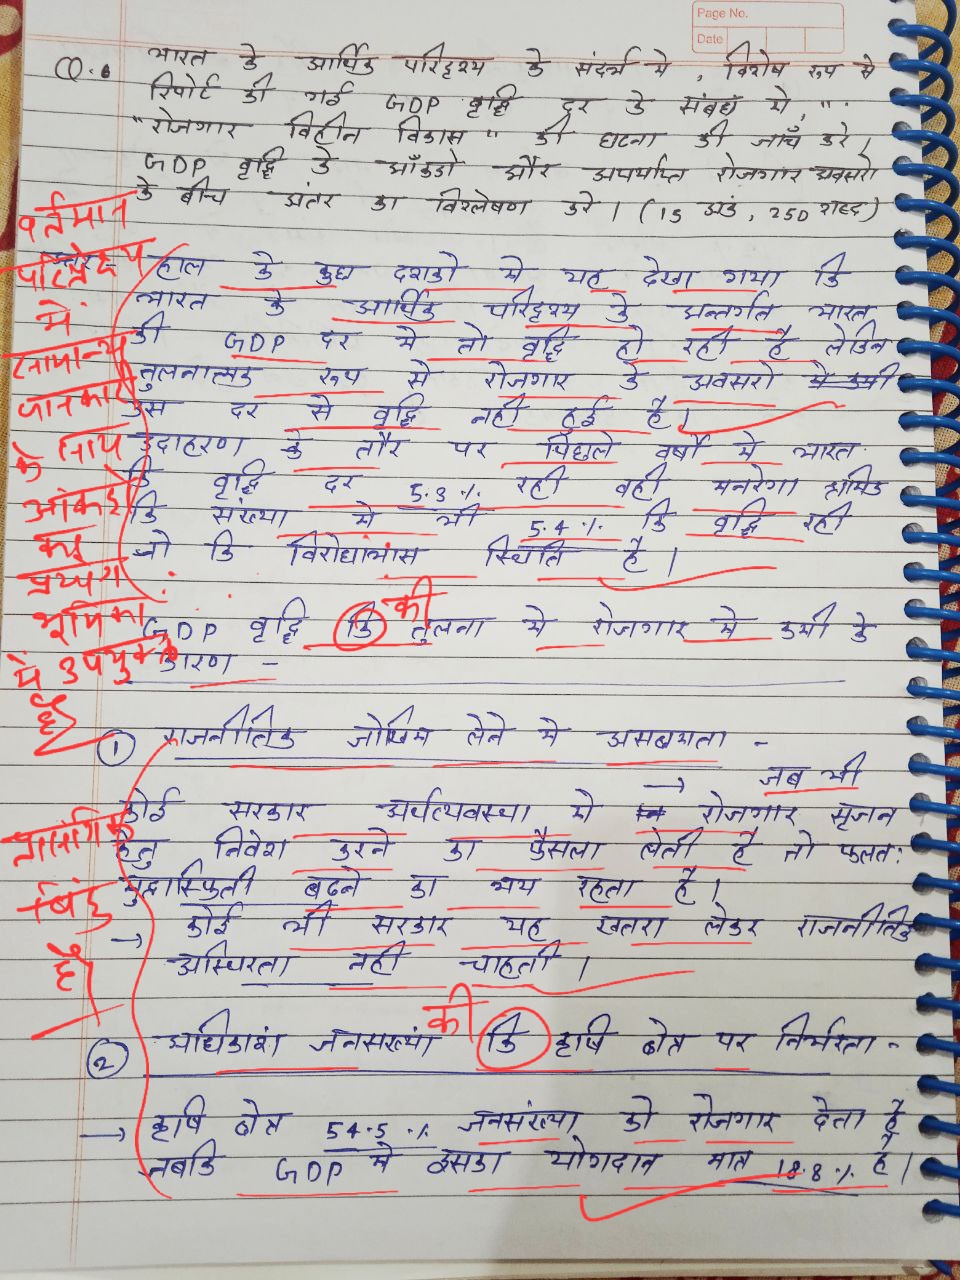 Page No.
Date
Q.6 भारत के आर्थिक परिदृश्य के संदर्भ मे, विशेष रूप से
रिपोर्ट की गई GDP वृद्धि दर के संबंध मे, "
"रोजगार विहीन विकास" की घटना की जाँच करे।
GDP वृद्धि के आँकडो और अपर्याप्त रोजगार अवसरो
के बीच अंतर का विश्लेषण करे। (15 अंक, 250 शब्द)
वर्तमान
परिप्रेक्ष्य
में
सामान्य
जानकारी
के साथ
आंकड़ो
का
प्रयोग
भूमिका
में उपयुक्त
है
उत्तर- हाल के कुछ दशको मे यह देखा गया कि
भारत के आर्थिक परिदृश्य के अन्तर्गत भारत
की GDP दर मे तो वृद्धि हो रही है लेकिन
तुलनात्मक रूप से रोजगार के अवसरो मे कमी
उस दर से वृद्धि नही हुई है।
उदाहरण के तौर पर पिछले वर्षो मे भारत
कि वृद्धि दर 5.3 % रही वही मनरेगा श्रमिक
कि संख्या मे भी 5.4 % कि वृद्धि रही
जो कि विरोधाभास स्थिति है।
की
GDP वृद्धि कि तुलना मे रोजगार मे कमी के
कारण -
① राजनीतिक जोखिम लेने मे असमर्थता -
→ जब भी
कोई सरकार अर्थव्यवस्था मे रोजगार सृजन
हेतु निवेश करने का फैसला लेती है तो फलत:
मुद्रास्फिती बढने का भय रहता है।
→ कोई भी सरकार यह खतरा लेकर राजनीतिक
अस्थिरता नही चाहती।
प्रासंगिक
बिंदु
है
की
② अधिकांश जनसंख्या कि कृषि क्षेत्र पर निर्भरता -
→ कृषि क्षेत्र 54.5 % जनसंख्या को रोजगार देता है
जबकि GDP मे इसका योगदान मात्र 18.8 % है।